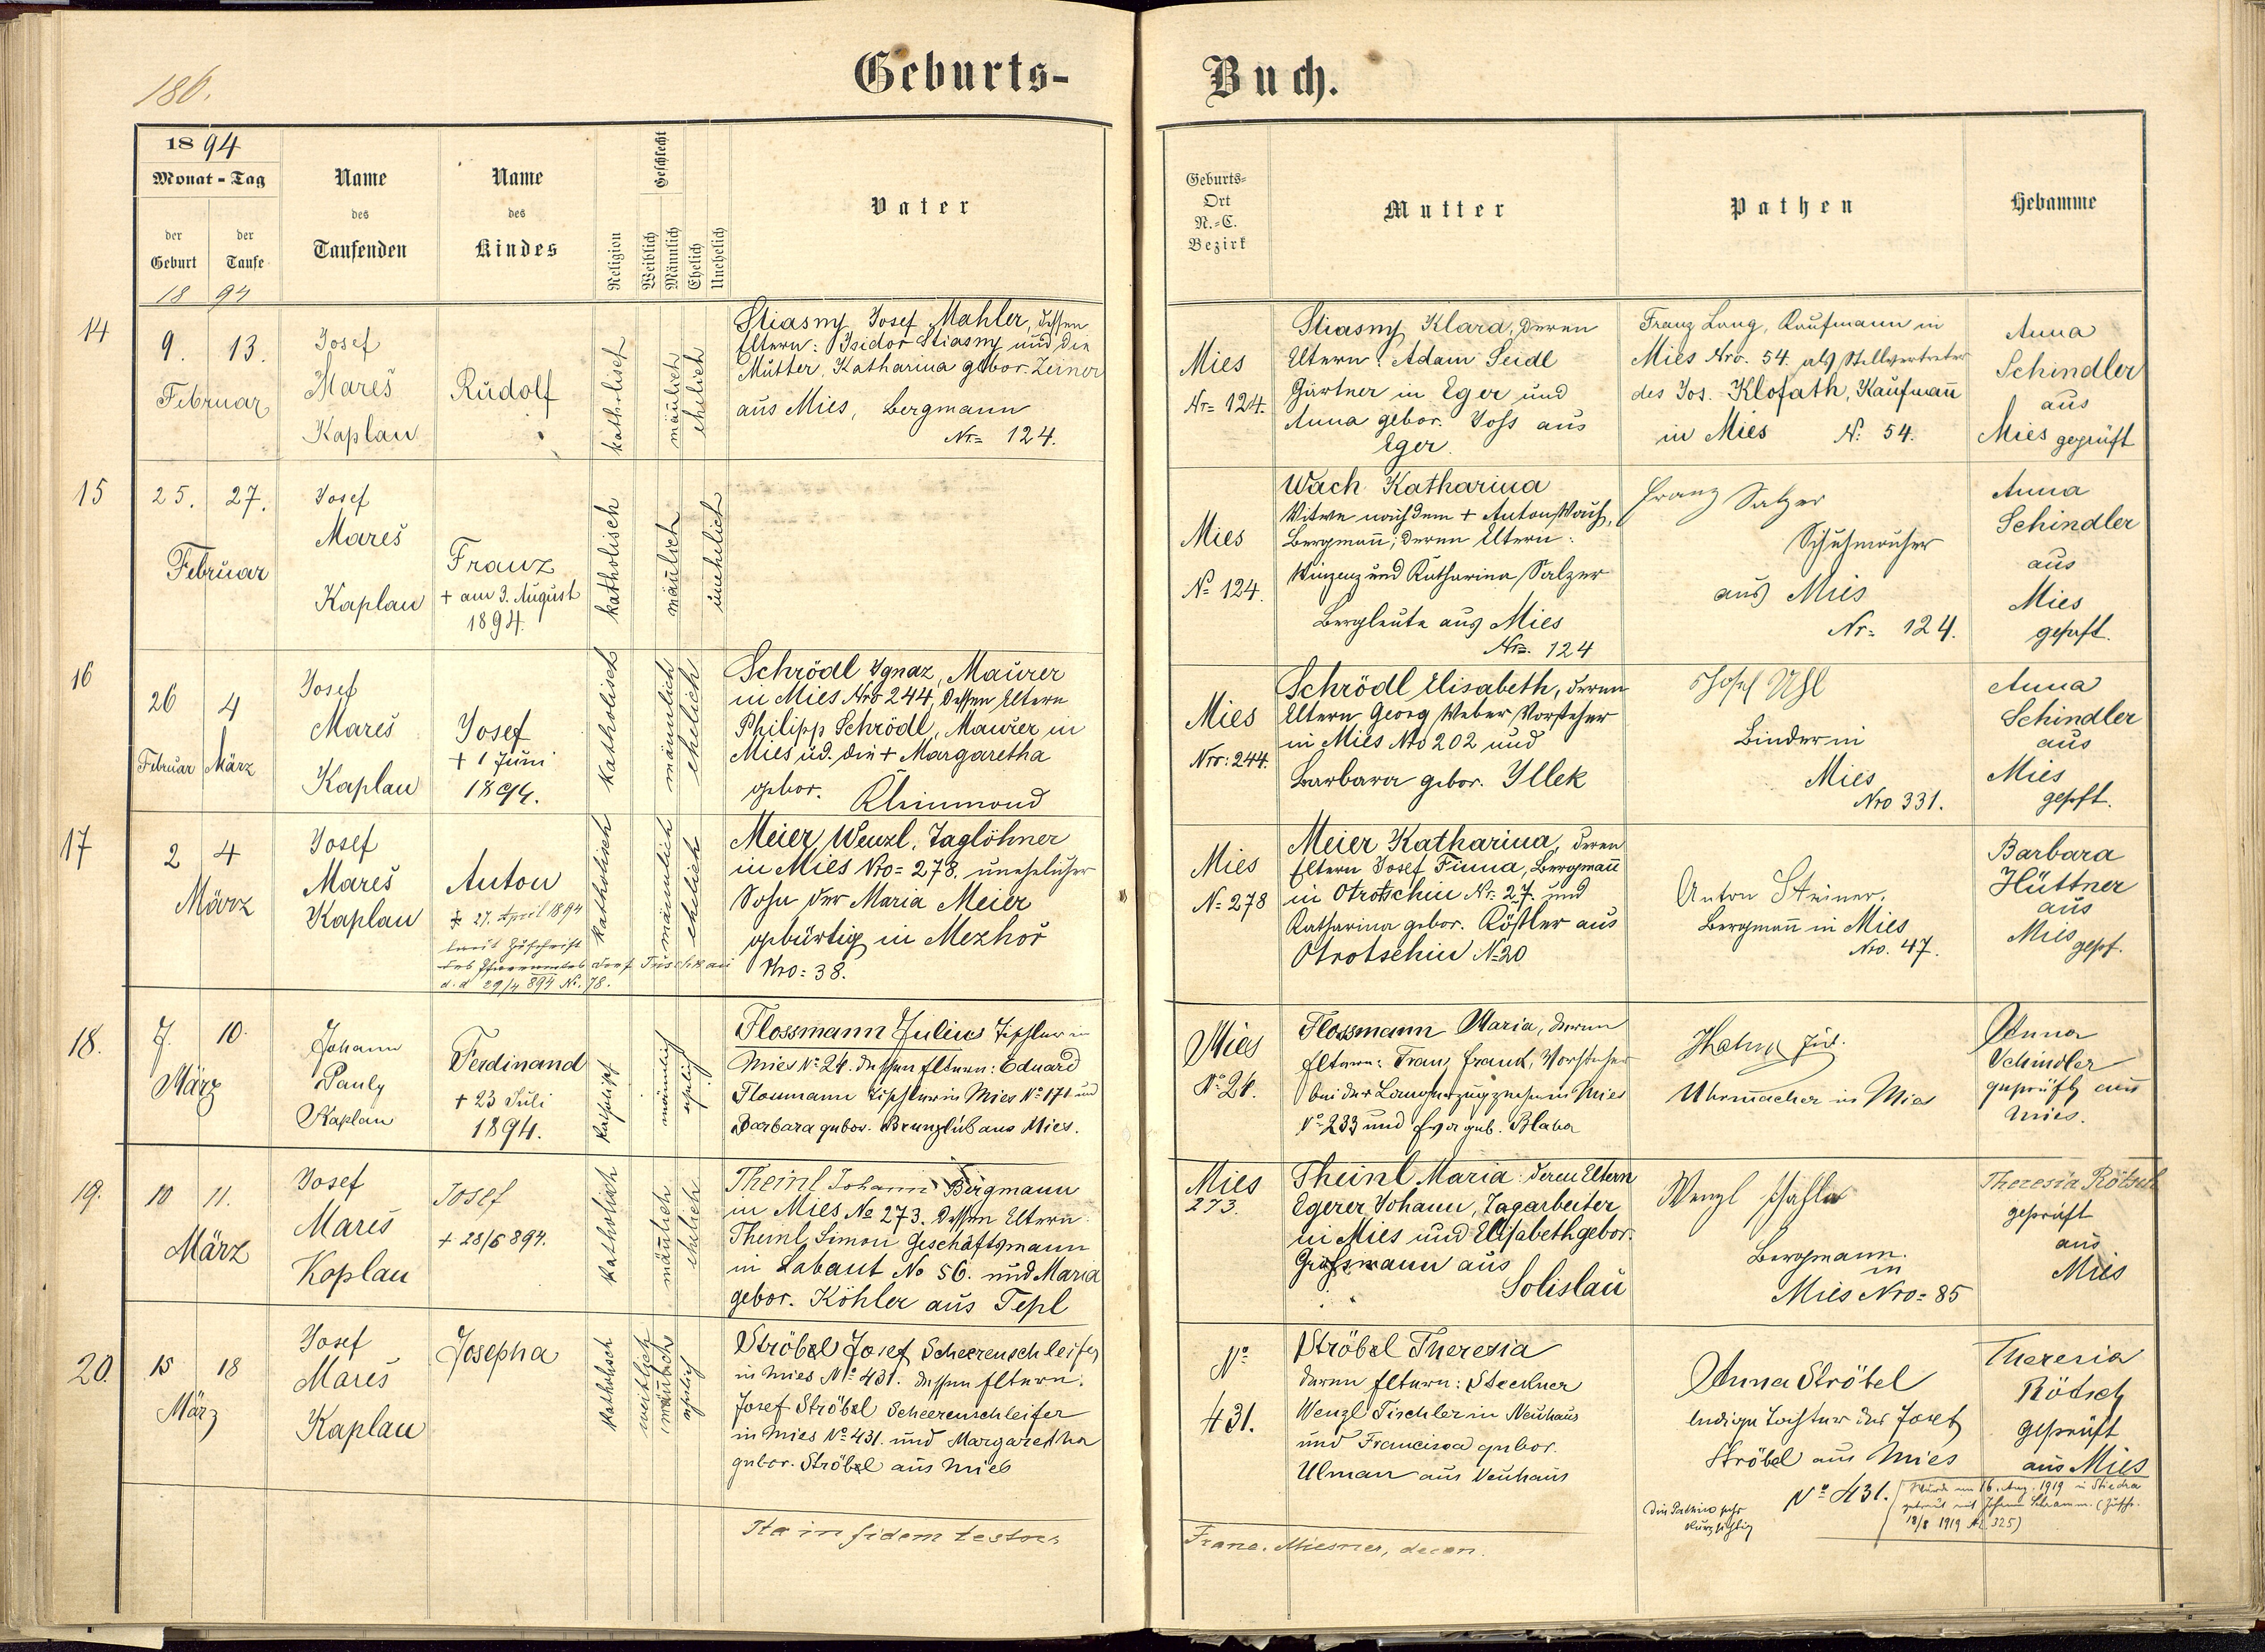 186.
Geburts-
Buch.
1894
Monat - Tag
der Geburt
der Taufe
18 94
Name des Taufenden
Name des Kindes
Religion
Geschlecht
Weiblich
Männlich
Ehelich
Unehelich
Vater
Geburts-
Ort
N.-C.
Bezirk
Mutter
Pathen
Hebamme
14
9. 13.
Februar
Josef
Mareš
Kaplan
Rudolf
katholisch
mäñlich
ehelich
Stiasny Josef Mahler, dessen
Eltern: Isidor Stiasny und die
Mutter, Katharina gebor. Zerner
aus Mies, Bergmann
Nr= 124.
Mies
Nr= 124.
Stiasny Klara, deren
Eltern: Adam Seidl
Gärtner in Eger und
Anna gebor. Joss aus
Eger.
Franz Lang, Kaufmann in
Mies Nro. 54. als Stellvertreter
des Jos. Klofath, Kaufmañ
in Mies N: 54.
Anna
Schindler
aus
Mies geprüft
15
25. 27.
Februar
Josef
Mareš
Kaplan
Franz
+ am 3. August
1894.
katholisch
mäñlich
unehelich
Mies
N= 124.
Wach Katharina
Witwe nach dem + Anton Wach,
Bergmañ; deren Eltern:
Winzenz und Katharina Salzer
Bergleute aus Mies
Nr. 124
Franz Salzer
Schuhmacher
aus Mies
Nr= 124.
Anna
Schindler
aus
Mies
geprft.
16
26 4
Februar März
Josef
Mareš
Kaplan
Josef
+ 1 Juni
1894.
katholisch
männlich
ehelich
Schrödl Ignaz, Maurer
in Mies Nro 244, dessen Eltern
Philipp Schrödl, Maurer in
Mies ud. die + Margaretha
gebor. Kleinmond
Mies
Nro: 244.
Schrödl Elisabeth, deren
Eltern Georg Weber Vorsteher
in Mies Nro 202 und
Barbara gebor. Illek
Josef Uhl
Binder in
Mies
Nro 331.
Anna
Schindler
aus
Mies
geprft.
17
2 4
März
Josef
Mareš
Kaplan
Anton
+ 27. April 1894
laut Zuschrift
des Pfarramtes Dorf Tuschkau
d. d 29/4 894 No. 78.
katholisch
männlich
ehelich
Meier Wenzl, Taglöhner
in Mies Nro= 278. unehelicher
Sohn der Maria Meier
gebürtig in Mezhoř
Nro: 38.
Mies
N= 278
Meier Katharina, deren
Eltern Josef Finna, Bergmañ
in Otrotschin Nr. 27. und
Katharina gebor. Rößler aus
Otrotschin N=20
Anton Steiner.
Bergmañ in Mies
Nro. 47.
Barbara
Hüttner
aus
Mies gepf.
18.
7. 10.
März
Johann
Pauly
Kaplan
Ferdinand
+ 23 Juli
1894.
kathol.
männlich
ehelich
Flossmann Julius Tischler in
Mies No 24. dessen Eltern: Eduard
Flossmann Tischler in Mies No 171 und
Barbara gebor. Brunzlik aus Mies.
Mies
No 24.
Flossmann Maria, deren
Eltern: Franz Frank, Vorsteher
bei der Langenzugzeche in Mies
No 233 und Eva geb. Blaha
Uhrmacher in Mies
Anna
Schindler
geprüft aus
Mies.
19.
10 11.
März
Josef
Mareš
Kaplan
Josef
+ 28/6 894.
katholisch
mäñlich
ehelich
Theinl Johann Bergmann
in Mies No 273. dessen Eltern
Theinl Simon Geschäftsmann
in Labant No 56. und Maria
gebor. Köhler aus Tepl
Mies
273.
Theinl Maria: deren Eltern
Egerer Johann, Tagarbeiter
in Mies und Elisabeth gebor.
Grossmann aus
Solislau
Wenzl
Bergmann.
in
Mies Nro= 85
Theresia Rötsch
geprüft
aus
Mies
20.
15 18
März
Josef
Mareš
Kaplan
Josepha
katholisch
weiblich
mäñlich
ehelich
Ströbel Josef Scheerenschleifer
in Mies No 431. dessen Eltern:
Josef Ströbel Scheerenschleifer
in Mies No 431. und Margaretha
gebor. Ströbel aus Mies
No
431.
Ströbel Theresia
deren Eltern: Steckner
Wenzl Tischler in Neuhaus
und Francisca gebor.
Ulman aus Neuhaus
Anna Ströbel
ledige Tochter des Josef
Ströbel aus Mies
No 431.
Die Pathin sehr
kurzsichtig
Theresia
Rödsch
geprüft
aus Mies
Wurde am 16. Aug. 1919 in Stiedra
getraut mit Johann Schramm. (Zuschr.
18/8 1919 Nr. 325)
Ita in fidem testor
Franc. Miesner, decan.